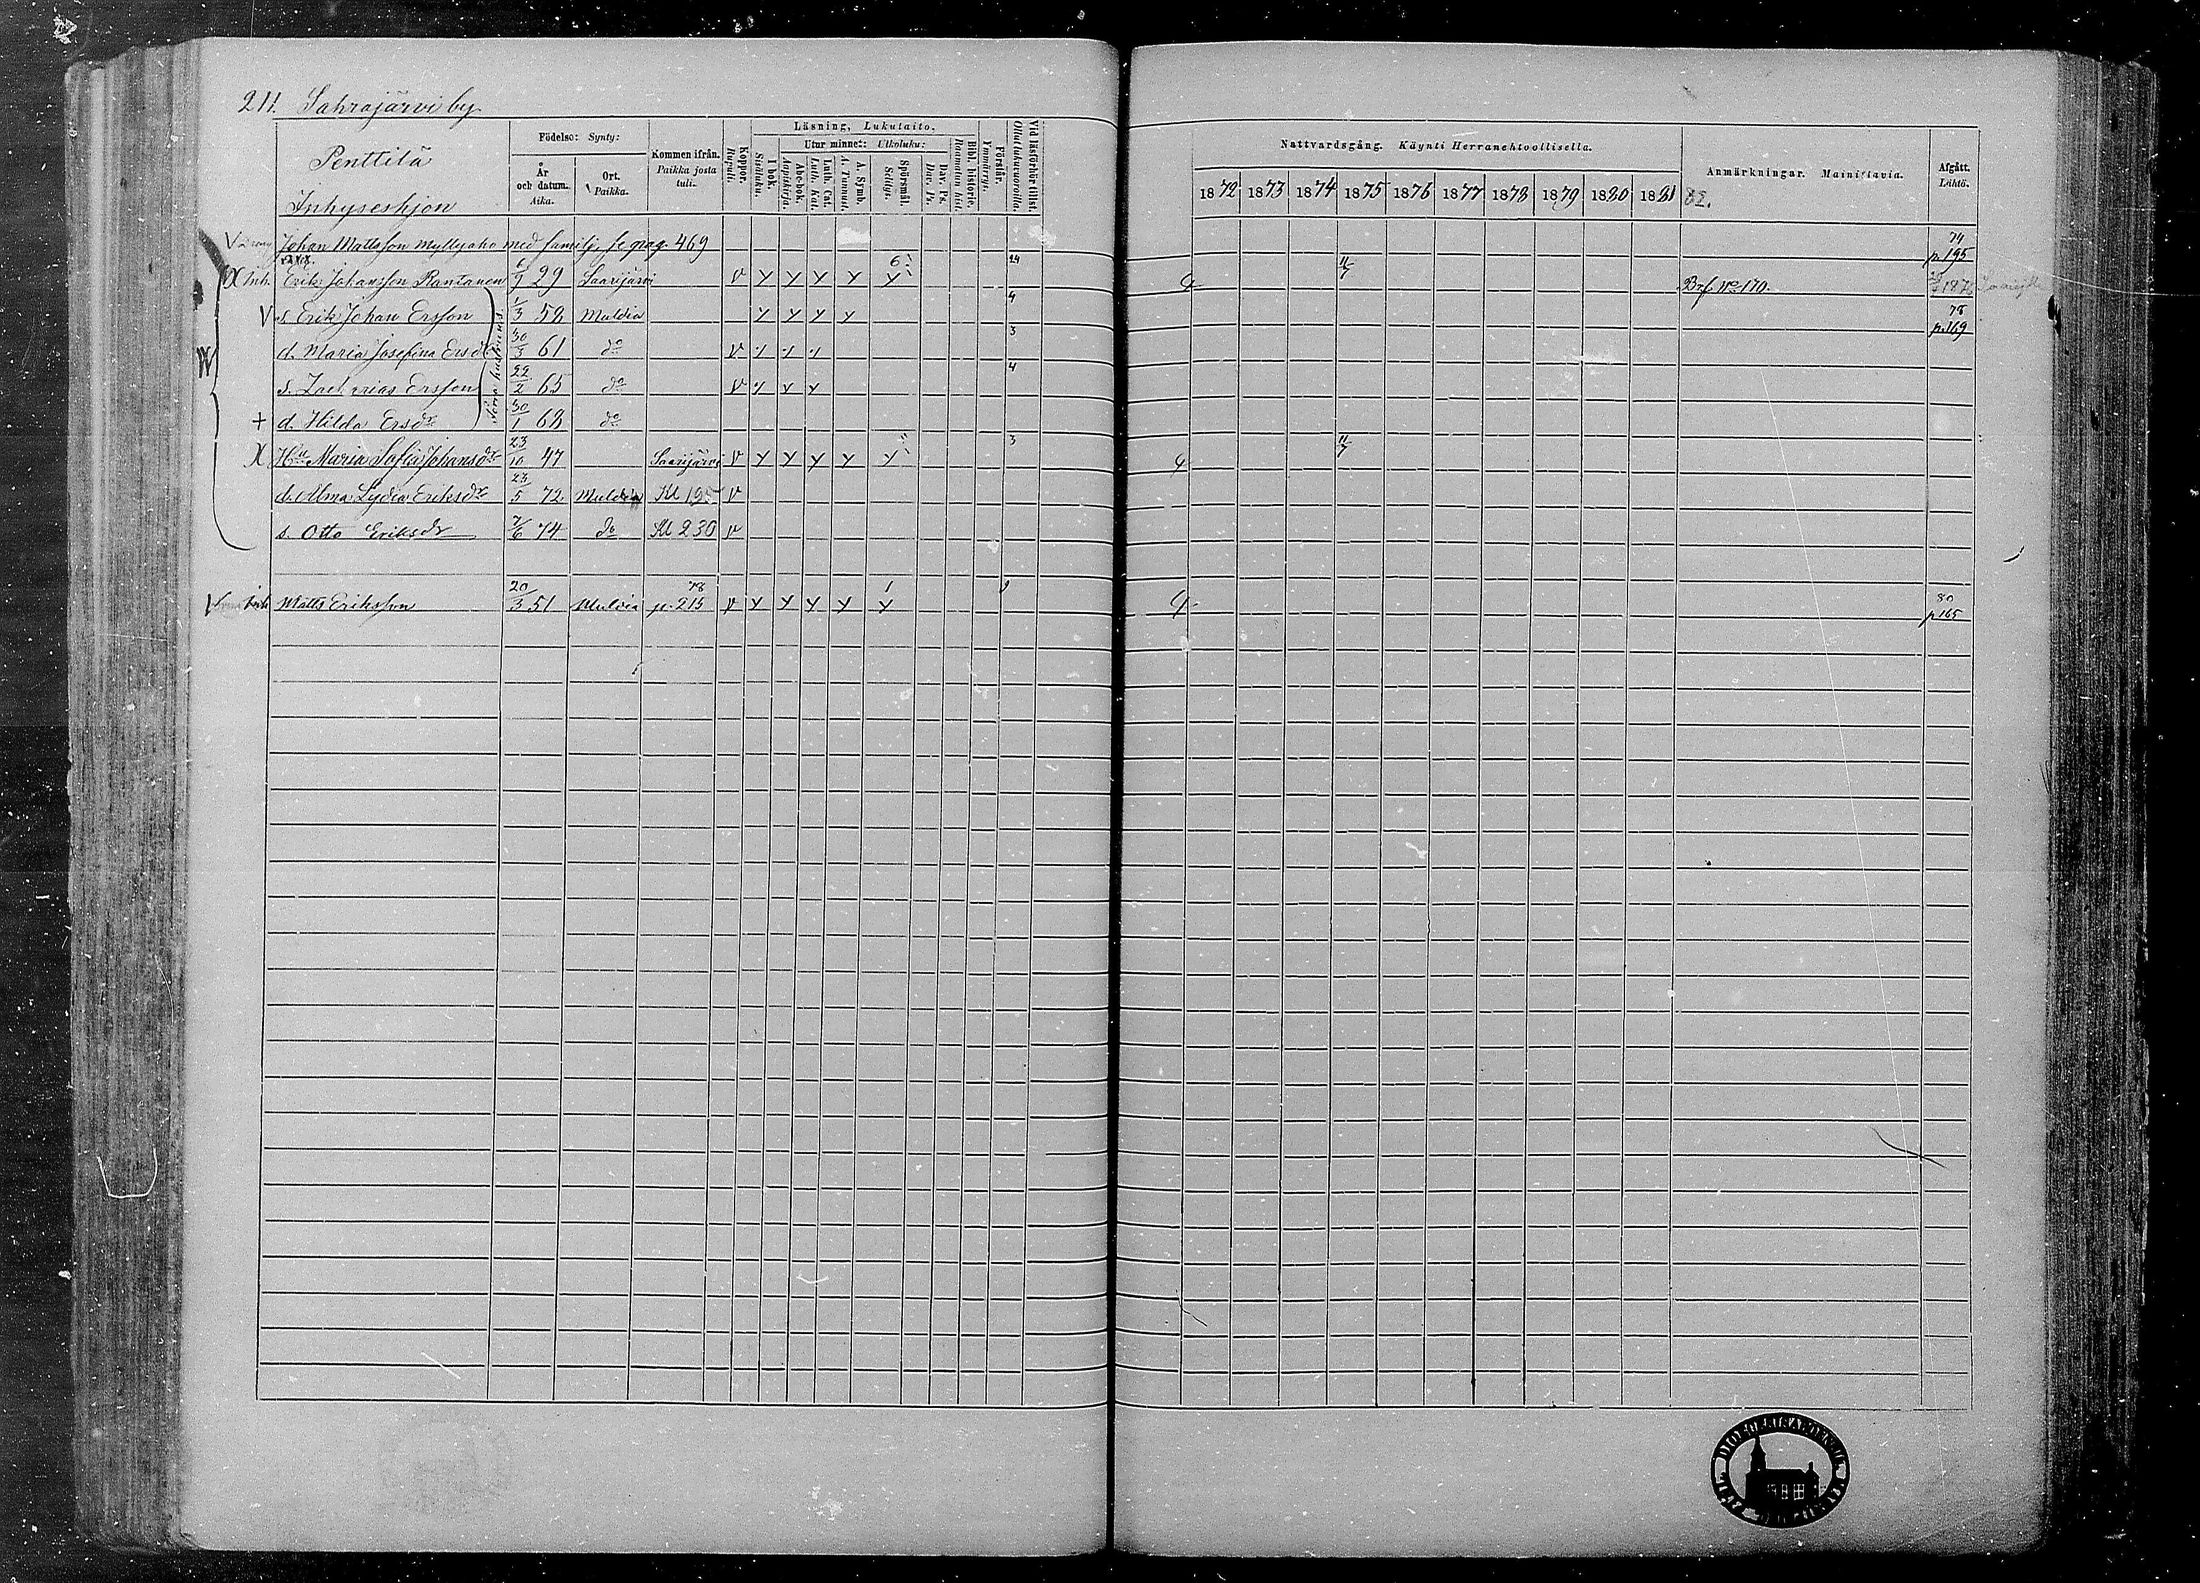 211. Sahrajärvi by
Penttilä
Inhyseshjon
Födelse: Synty:
År och datum. Aika.
Ort. Paikka.
Kommen ifrån. Paikka josta tuli.
Koppor. Rupuli.
Läsning, Lukutaito.
I bok. Sisäluku.
Utur minnet: Ulkoluku:
Abc-bok. Aapiskirja.
Luth. Cat. Luth. Kat.
A. Symb. A. Tunnut.
Spörsmål. Selitys.
Dav. Ps. Dav. Ps.
Bibl. historie. Raamatun hist.
Förstår. Ymmärrys.
Vid läsförhör tillst. Ollut lukuvuoroilla.
Nattvardsgång. Käynti Herranehtoollisella.
1872 1873 1874 1875 1876 1877 1878 1879 1880 1881 82.
Anmärkningar. Muistettavia.
Afgått. Lähtö.
V Johan Mattsson Myllyaho med familj, se pag. 469 74 p. 195
X Inh. Erik Johansson Rantanen 6/9 29 Saarijärvi V Y Y Y Y 6 Y 24 11/7 Bet. No 170.
V s. Erik Johan Ersson 1/3 58 Muldia Y Y Y Y 4 78 p. 169
d. Maria Josefina Ersdr 30/3 61 do V 3
s. Zachrias Ersson 22/2 65 do V Y Y Y 4
+ d. Hilda Ersdr 30/1 68 do
X Hu Maria Sofia Johansdr 23/10 47 Saarijärvi V Y Y Y Y Y 3 11/7
d. Alma Lydia Eriksdr 23/5 72 Muldia Kl 195 V
s. Otto Eriksdr 7/6 74 do Kl 230 V
V Inh Matts Eriksson 20/3 51 Muldia 78 p. 215 V Y Y Y Y 1 Y 80 p 165